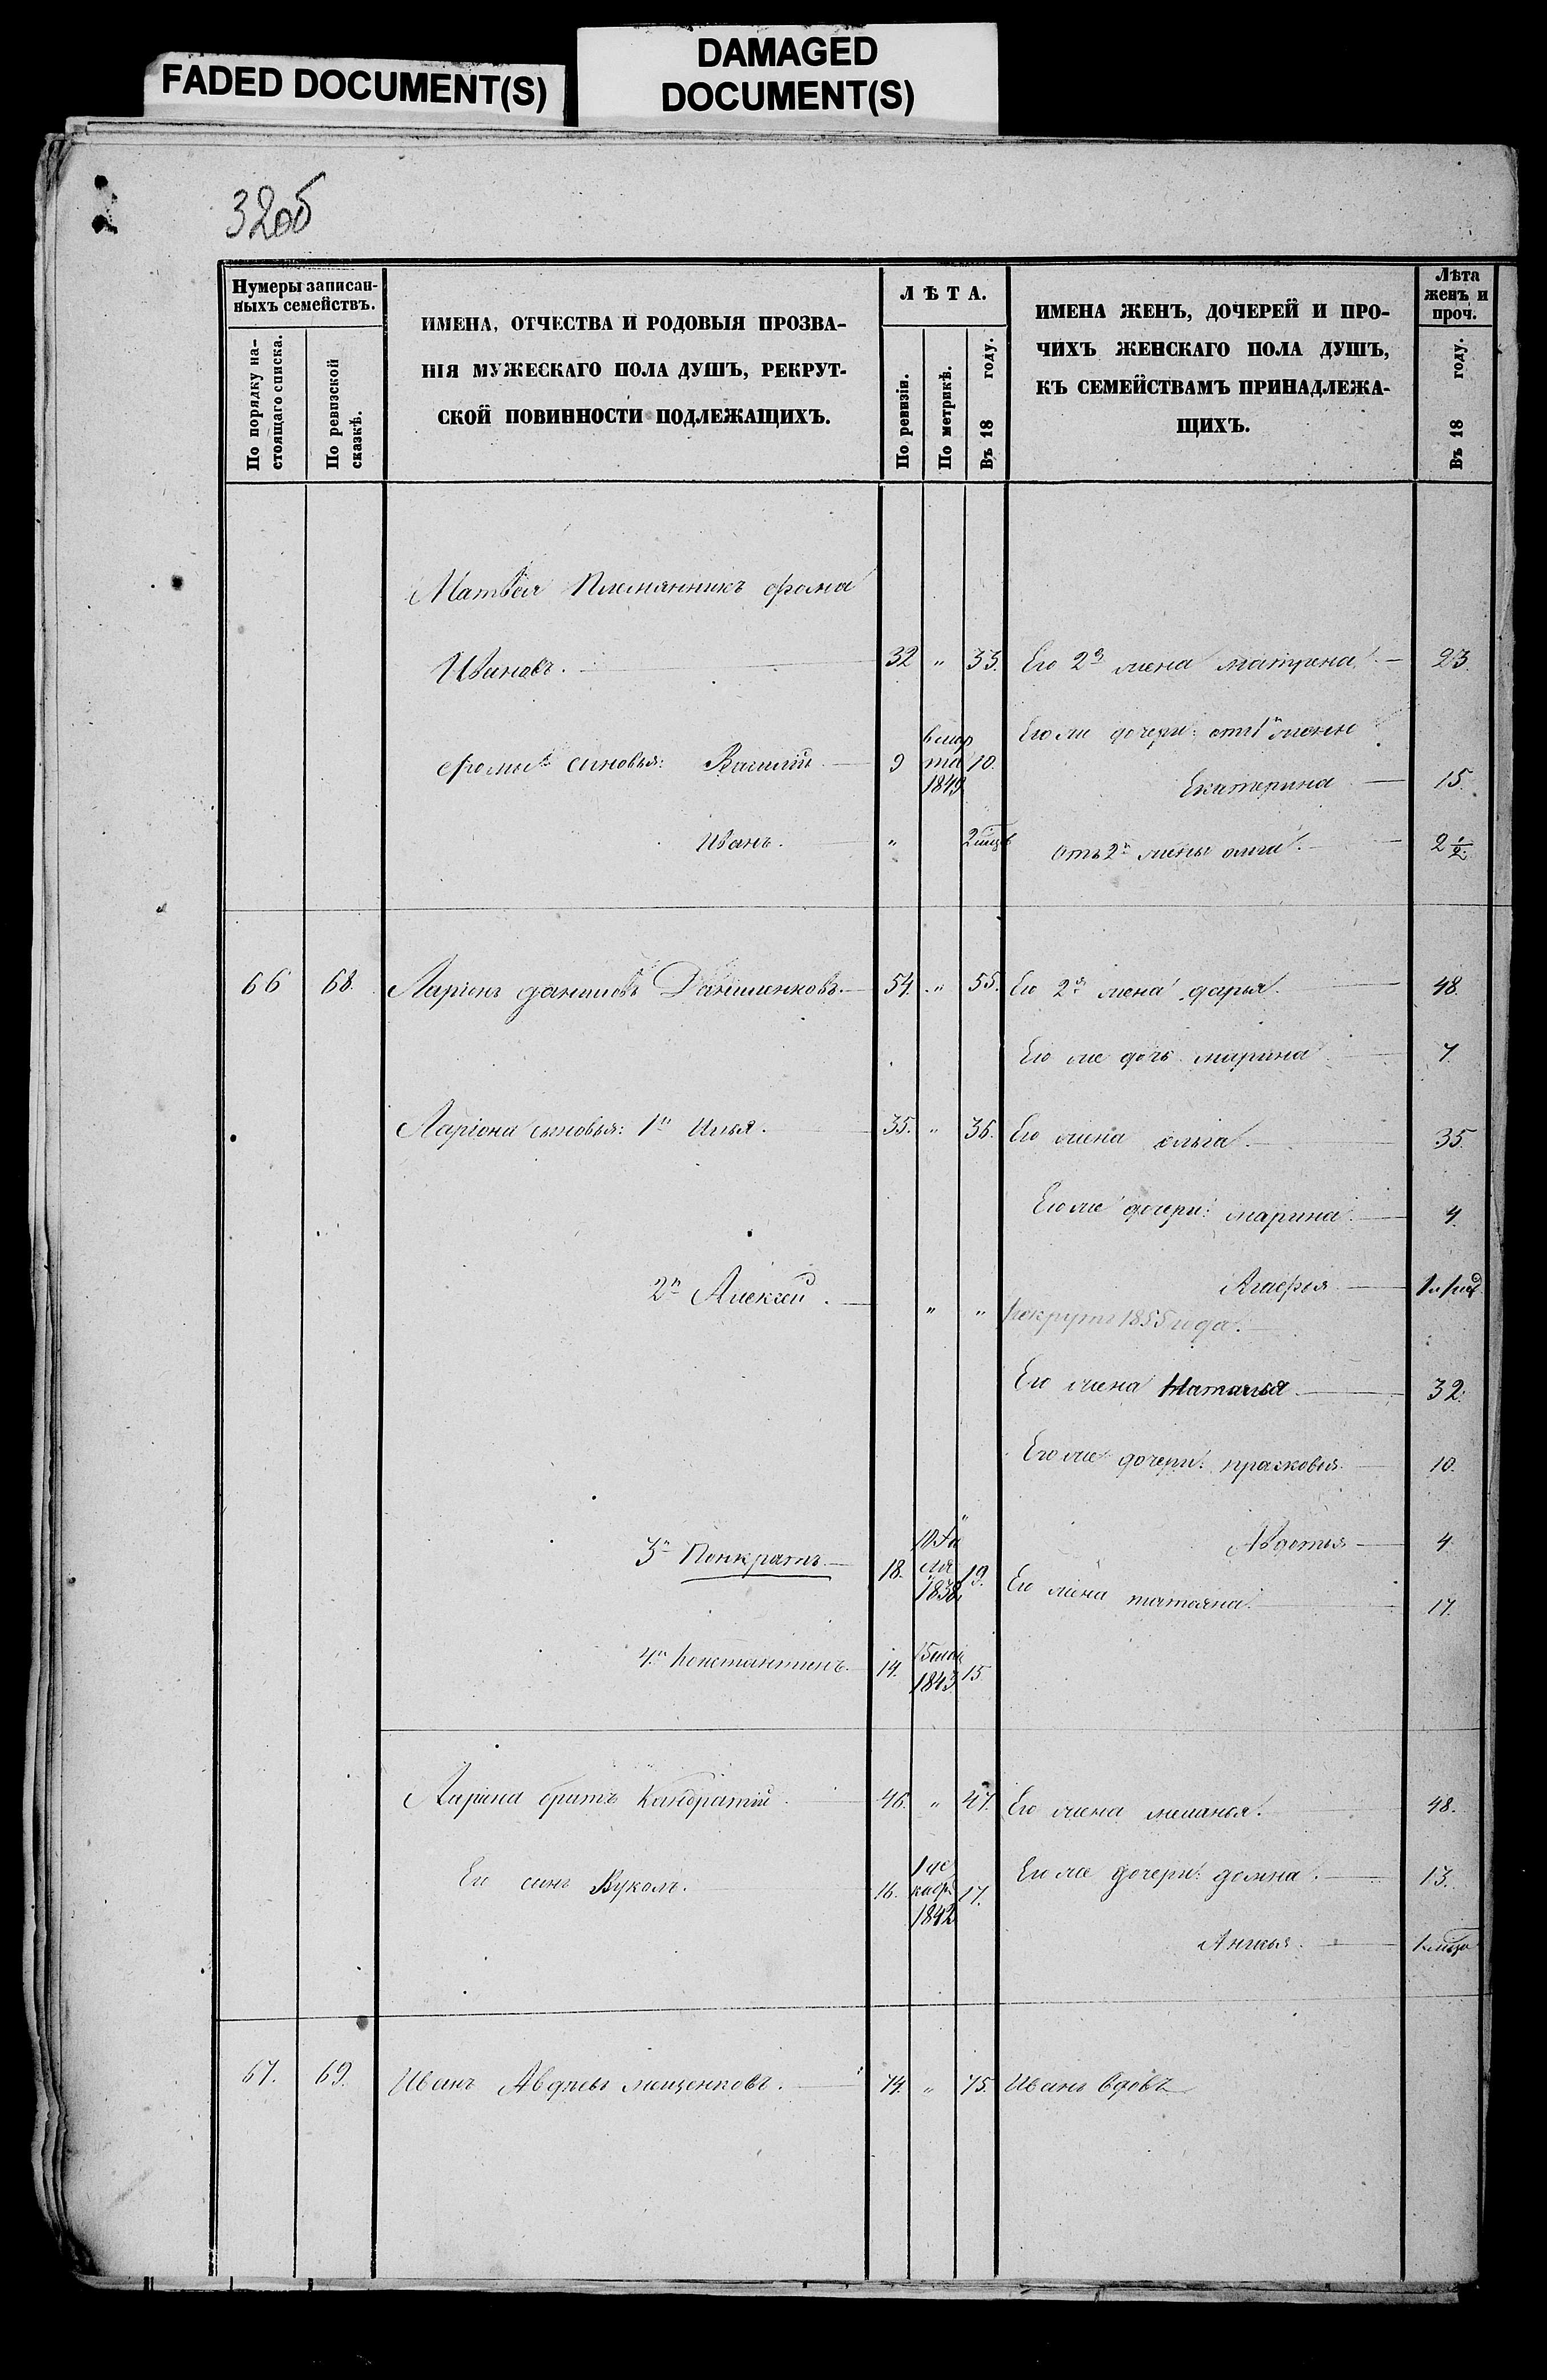 FADED DOCUMENT(S)
DAMAGED
DOCUMENT(S)
32об
Нумеры записан-
ныхъ семействъ.
По порядку на-
стоящаго списка.
По ревизской
сказкѣ.
ИМЕНА, ОТЧЕСТВА И РОДОВЫЯ ПРОЗВА-
НІЯ МУЖЕСКАГО ПОЛА ДУШЪ, РЕКРУТ-
СКОЙ ПОВИННОСТИ ПОДЛЕЖАЩИХЪ.
ЛѢТА.
По ревизіи.
По метрикѣ.
Въ 18 году.
ИМЕНА ЖЕНЪ, ДОЧЕРЕЙ И ПРО-
ЧИХЪ ЖЕНСКАГО ПОЛА ДУШЪ,
КЪ СЕМЕЙСТВАМЪ ПРИНАДЛЕЖА-
ЩИХЪ.
Лѣта
женъ и
проч.
Въ 18 году.
Матвея Племянникъ фома
Ивановъ. 32 " 33. Его 2я жена матрена 23.
Его же дочери: отъ 1й жены
фомы сыновья: Василий 9 6 мар
та 1849 10.
Екатерина 15.
Иванъ. " 2 мцъ
отъ 2й жены ольга. 2 1/2.
66 68. Ларіонъ даниловъ Даниленковъ. 54. " 55. Его 2я жена дарья. 48.
Его же дочь марина 7.
Ларіона сыновья: 1й Илья. 35. " 36. Его жена ольга. 35.
Его же дочери: марина 4.
Агафья
2й Алексей. " " рекрутъ 1855 года.
Его жена Наталья 32.
Его же дочери: прасковья 10.
Авдотья 4.
3й Понкратъ 18. 1838 19.
Его жена татьяна. 17.
4й Константинъ. 14. 1843 15
Ларіона братъ Кандратий. 46. " 47. Его жена меланья. 48.
Его сынъ Вуколъ. 16. 1 де
кабр.
1842 17.
Его же дочери: домна. 13.
67. 69. Иванъ Авдѣевъ мещенковъ. 74. " 75. Иванъ вдовъ